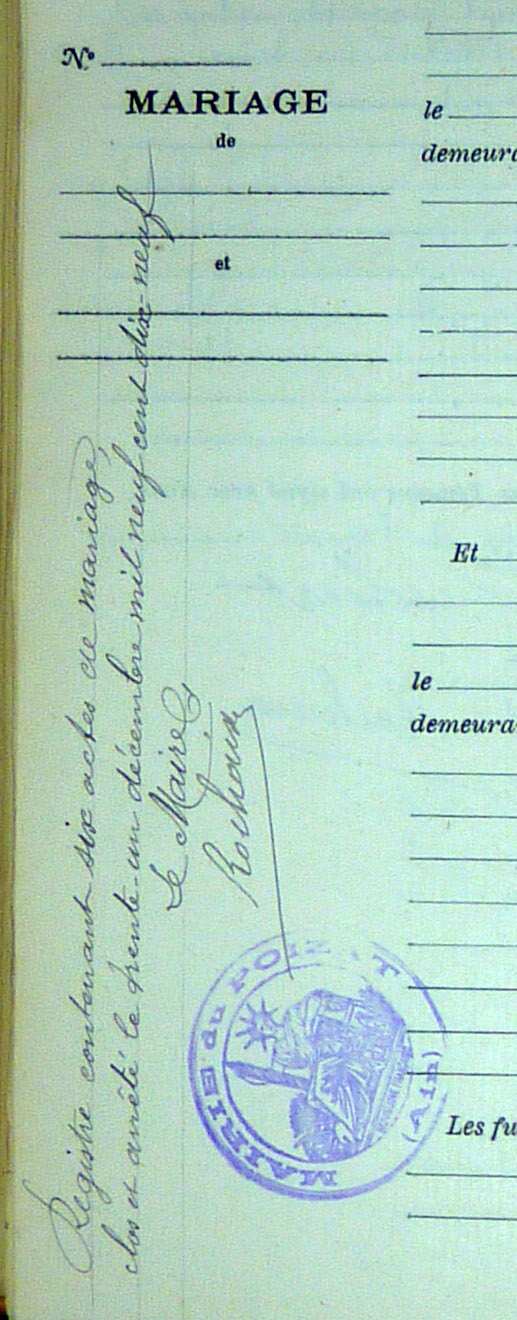 N°
MARIAGE
de
et
le
demeura
Et
le
demeura
Les fu
Registre contenant six actes de mariage,
clos et arrêté le trente-un décembre mil neuf cent dix-neuf
Le Maire
Rochaix
MAIRIE du POIZAT
(Ain)